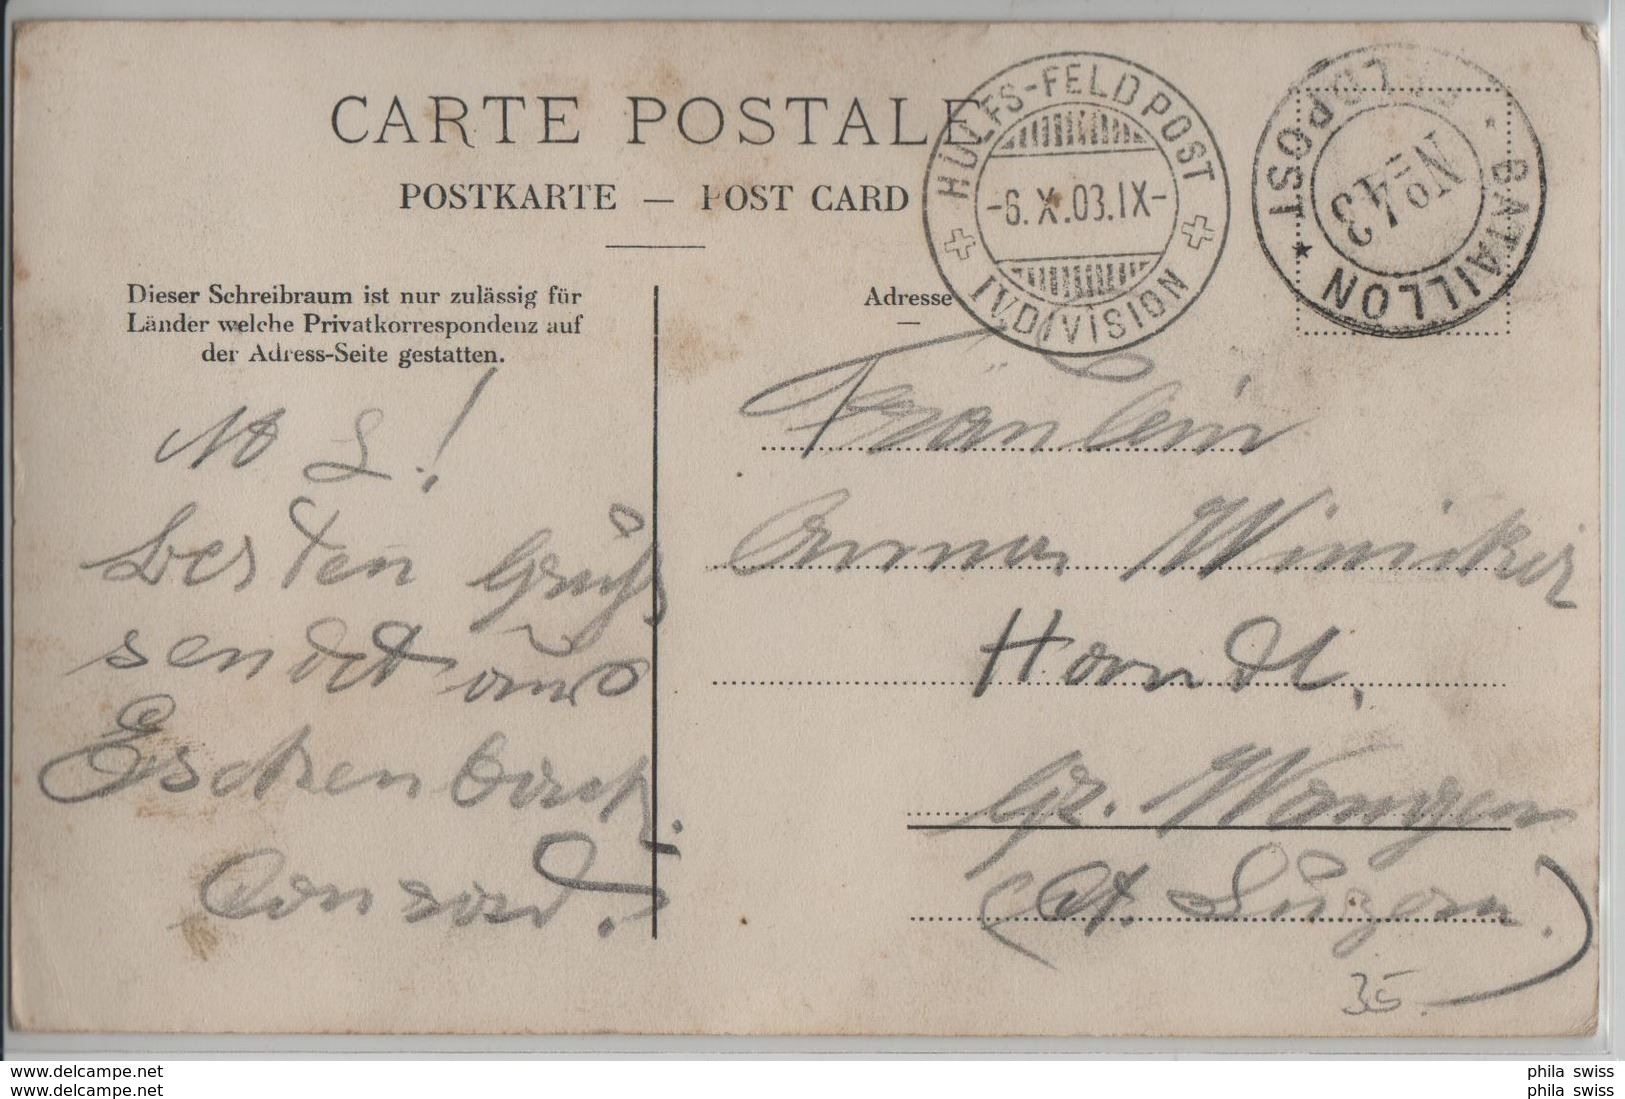 CARTE POSTALE
POSTKARTE — POST CARD
HÜLFS-FELDPOST
-6.X.03.IX-
IV.DIVISION
FELDPOST
No 43
BATAILLON
Dieser Schreibraum ist nur zulässig für
Länder welche Privatkorrespondenz auf
der Adress-Seite gestatten.
Adresse
L!
besten Gruß
sendet aus
Eschenbach.
Conrad.
Fräulein
Anna Winiker
Handl.
Gr. Wangen
(Ct. Luzern.)
35.
www.delcampe.net
www.delcampe.net
phila swiss
phila swiss